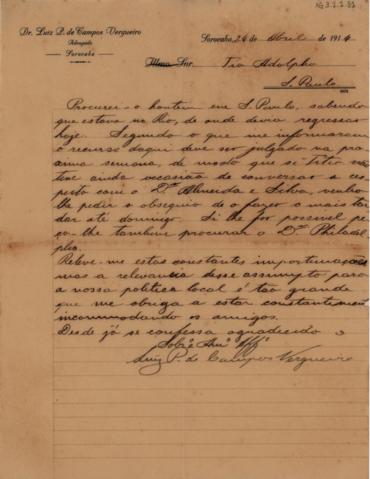 AG 3.2.2.31
Dr. Luiz P. de Campos Vergueiro
Advogado
Sorocaba
Sorocaba, 24 de Abril de 1914
Illmo. Snr. Tio Adolpho
S. Paulo
Procurei-o hontem em S. Paulo, sabendo
que estava no Rio, de onde devia regressar
hoje. Segundo o que me informaram
o recurso daqui deve ser julgado na pro
xima semana, de modo que si
ainda occasião de conversar a res
peito com o Dr. Almeida e Silva, venho
lhe pedir o obsequio de o fazer o mais tar
dar até domingo. Si lhe for possivel pe
ço-lhe tambem procurar o Dr. Philadel
pho.
Releve-me estas constantes importunações
mas a relevancia desse assumpto para
a nossa politica local é tão grande
que me obriga a estar constantemente
incommodando os amigos.
Desde já se confessa agradecido o
Sobrº Amº
Luiz P. de Campos Vergueiro